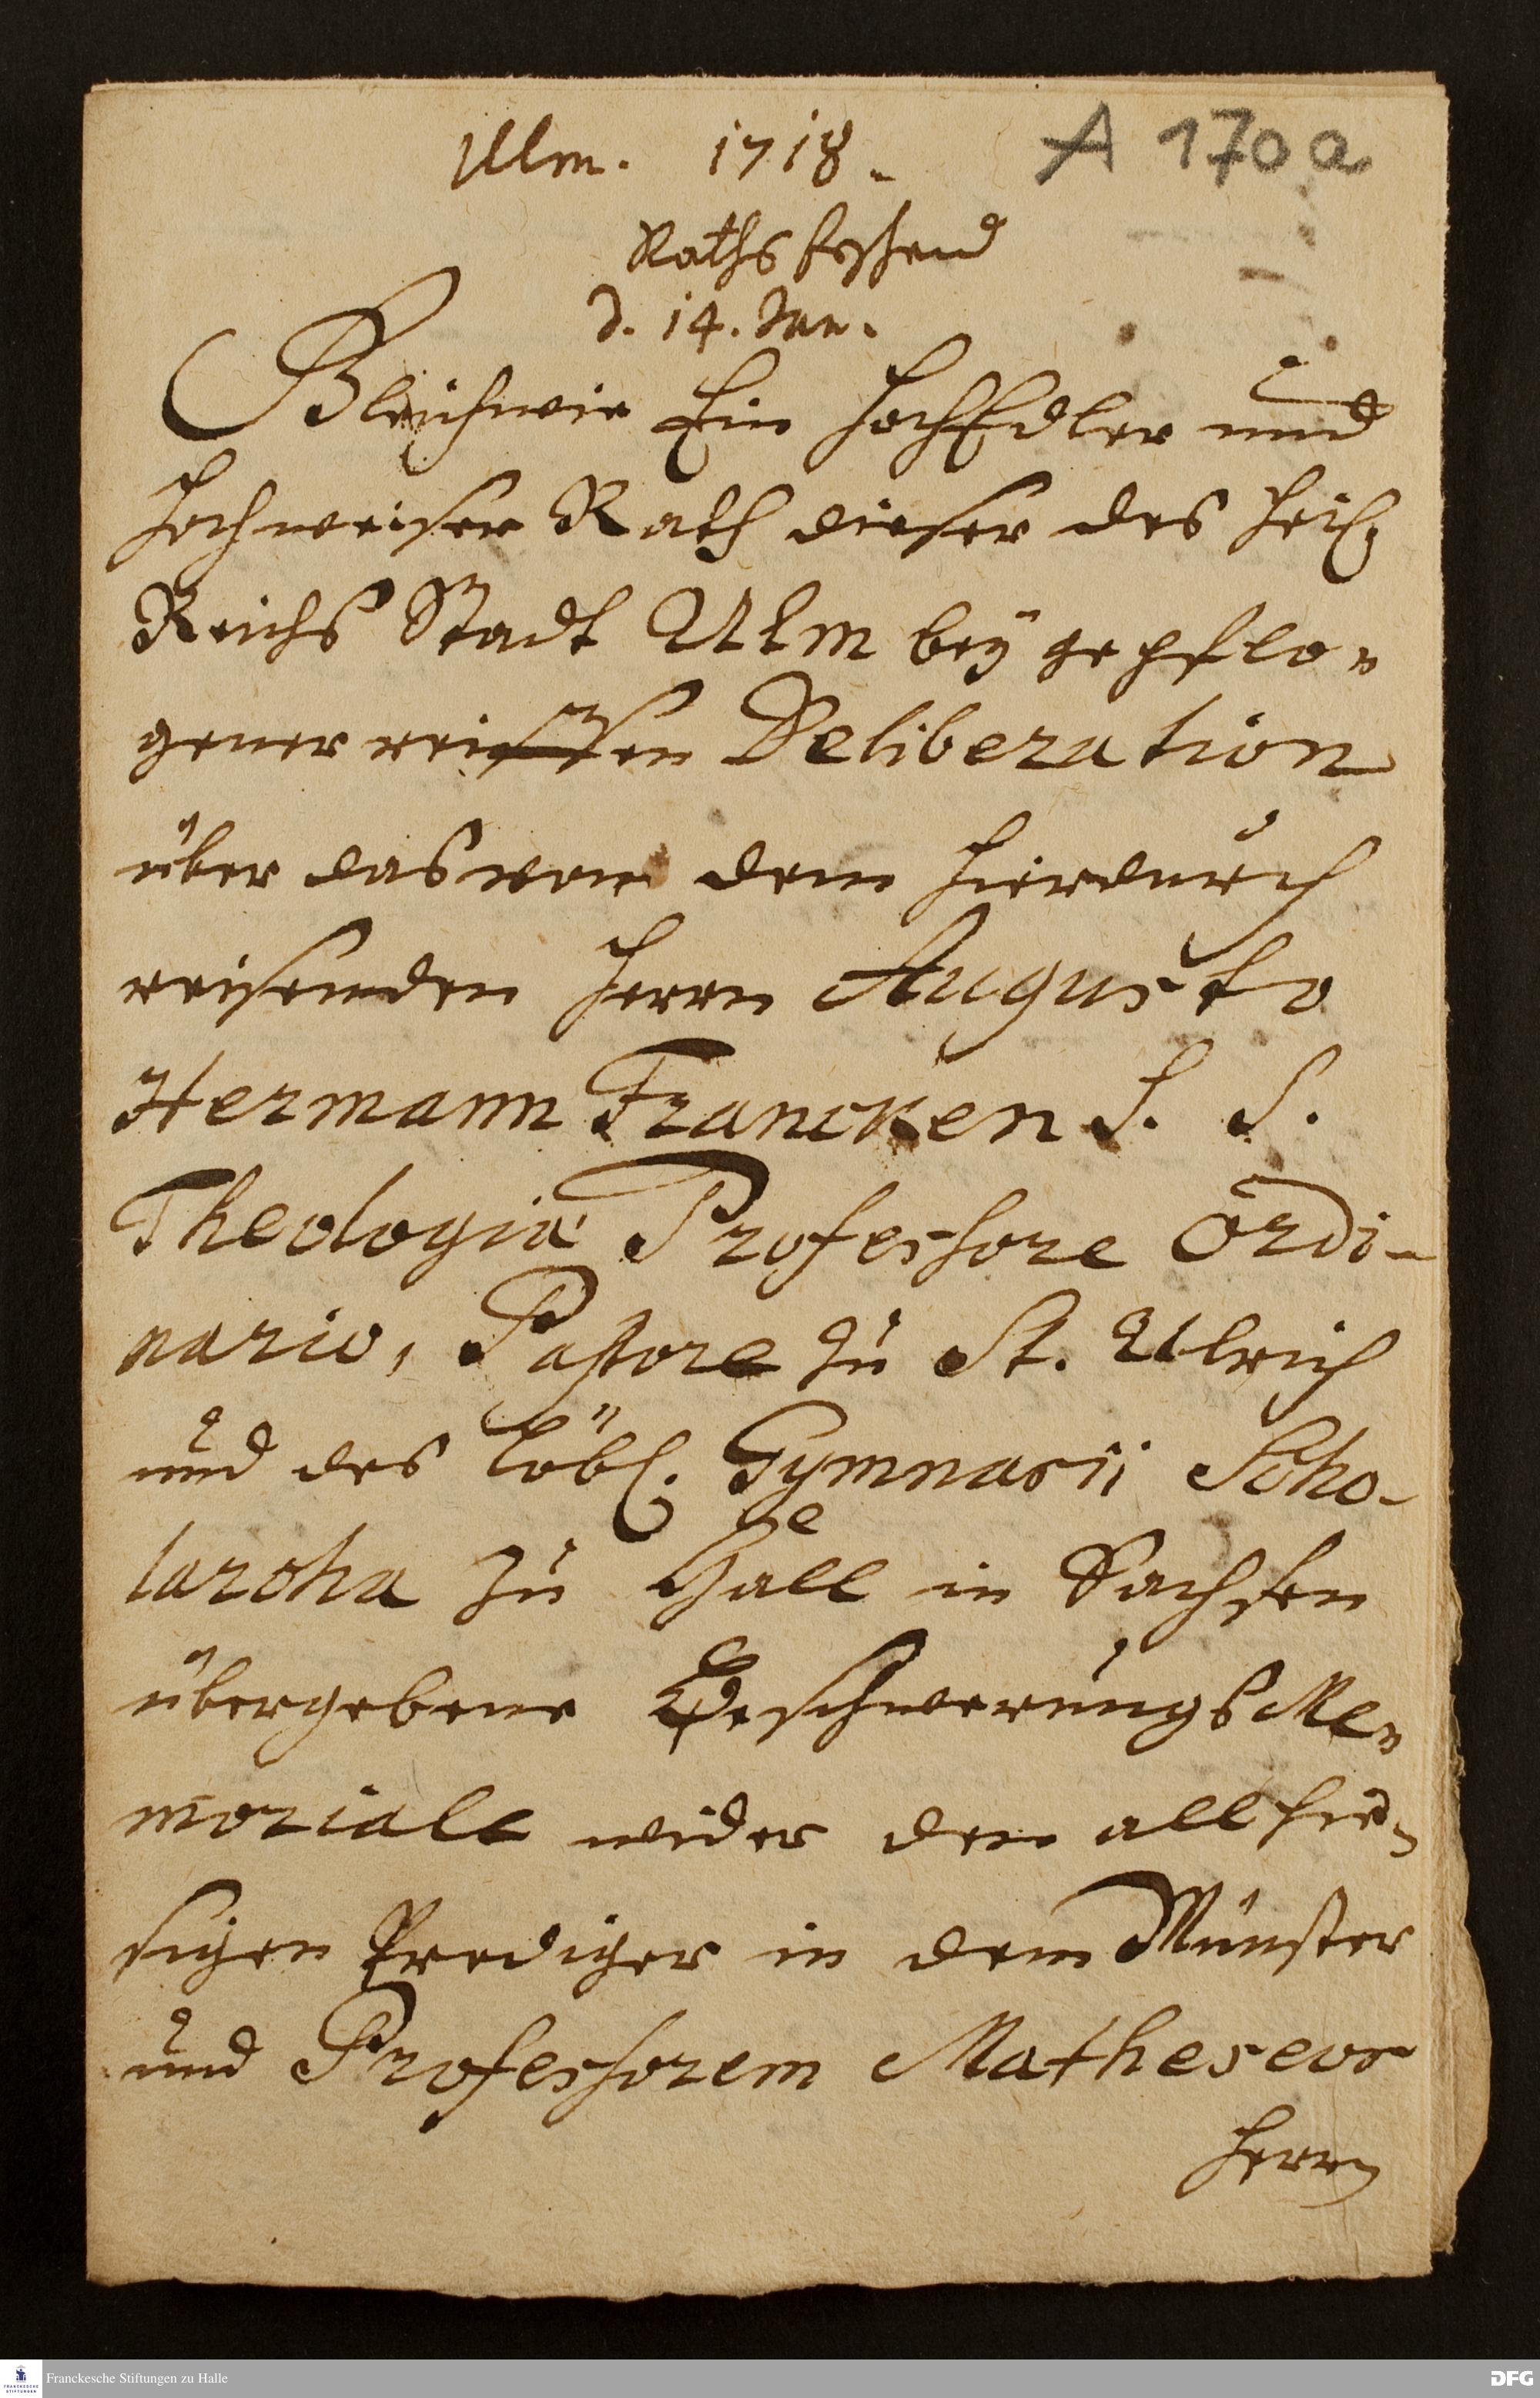 Ulm. 1718.
A 170 a
Raths
d. 14. Jan.
Gleichwie Ein HochEdler und
Hochweiser Rath dieser des Heil.
Reichs Stadt Ulm bey gepflo-
gener reiffen Deliberation
über das von dem hierdurch
reisenden Herrn Augusto
Hermann Francken S. S.
Theologiæ Professore Ordi-
nario, Pastore zu St. Ulrich
und des löbl. Gymnasii Scho-
larcha zu Halle in Sachsen
übergebene Beschwerungs Me-
moriale wider den allhie-
sigen Prediger in dem Münster
und Professorem Matheseos
Herrn
Franckesche Stiftungen zu Halle
DFG